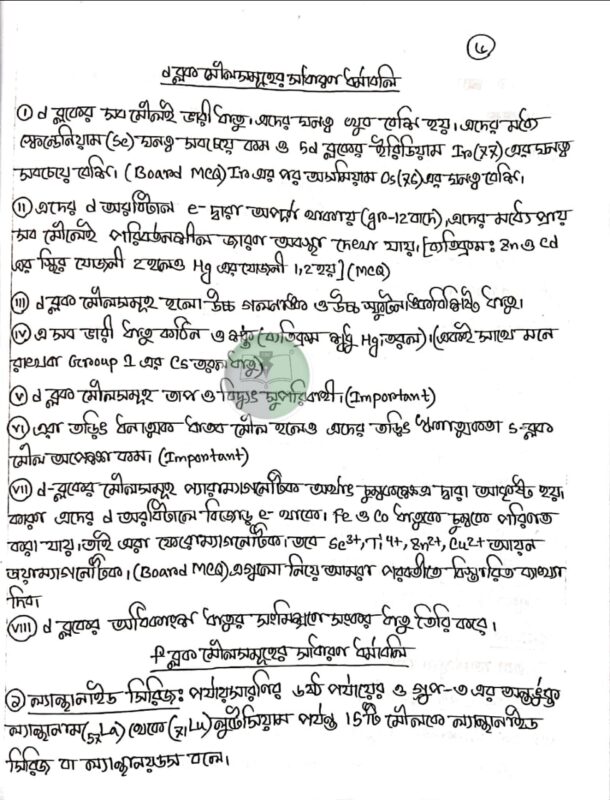 ৫
d ব্লক মৌলসমূহের সাধারণ ধর্মাবলি
(i) d ব্লকের সব মৌলই ভারী ধাতু। এদের ঘনত্ব খুব বেশি হয়। এদের মধ্যে
স্ক্যান্ডেনিয়াম (Sc) ঘনত্ব সবচেয়ে কম ও 5d ব্লকের ইরিডিয়াম Ir(77) এর ঘনত্ব
সবচেয়ে বেশি। (Board MCQ) Ir এর পর অসমিয়াম Os(76) এর ঘনত্ব বেশি।
(ii) এদের d অরবিটাল e- দ্বারা অপূর্ণ থাকায় (gr-12 বাদে), এদের মধ্যে প্রায়
সব মৌলেই পরিবর্তনশীল জারণ অবস্থা দেখা যায়। [ব্যতিক্রম: Zn ও Cd
এর স্থির যোজনী 2 হলেও Hg এর যোজনী 1,2 হয়] (MCQ)
(iii) d ব্লক মৌলসমূহ হলো উচ্চ গলনাঙ্ক ও উচ্চ স্ফুটনাঙ্কবিশিষ্ট ধাতু।
(iv) এ সব ভারী ধাতু কঠিন ও শক্ত (ব্যতিক্রম শুধু Hg; তরল)। (একই সাথে মনে
রাখবা Group 1 এর Cs তরল ধাতু)
(v) d ব্লক মৌলসমূহ তাপ ও বিদ্যুৎ সুপরিবাহী। (Important)
(vi) এরা তড়িৎ ধনাত্মক ধাতব মৌল হলেও এদের তড়িৎ ঋনাত্মকতা s-ব্লক
মৌল অপেক্ষা কম। (Important)
(vii) d-ব্লকের মৌলসমূহ প্যারাম্যাগনেটিক অর্থাৎ চুম্বকক্ষেত্র দ্বারা আকৃষ্ট হয়,
কারণ এদের d অরবিটালে বিজোড় e- থাকে। Fe ও Co ধাতুকে চুম্বকে পরিণত
করা যায়, তাই এরা ফেরোম্যাগনেটিক। তবে Sc3+, Ti4+, Zn2+, Cu2+ আয়ন
ডায়াম্যাগনেটিক। (Board MCQ) এগুলো নিয়ে আমরা পরবর্তীতে বিস্তারিত ব্যাখ্যা
দিব।
(viii) d ব্লকের অধিকাংশ ধাতুর সংমিশ্রণে সংকর ধাতু তৈরি করে।
f ব্লক মৌলসমূহের সাধারণ ধর্মাবলি
(১) ল্যান্থানাইড সিরিজ: পর্যায়সারণির ৬ষ্ঠ পর্যায়ের ও গ্রুপ-৩ এর অন্তর্ভুক্ত
ল্যান্থানাম (57La) থেকে (71Lu) লুটেসিয়াম পর্যন্ত 15টি মৌলকে ল্যান্থানাইড
সিরিজ বা ল্যান্থানয়ডস বলে।